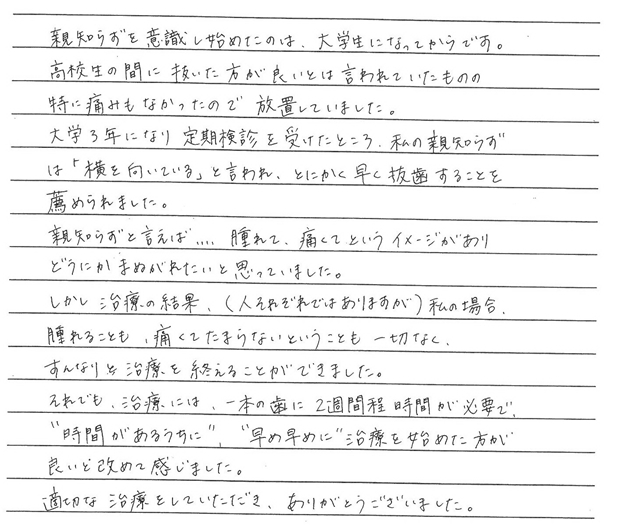 親知らずを意識し始めたのは、大学生になってからです。
高校生の間に抜いた方が良いとは言われていたものの
特に痛みもなかったので放置していました。
大学3年になり定期検診を受けたところ、私の親知らず
は「横を向いている」と言われ、とにかく早く抜歯することを
薦められました。
親知らずと言えば....腫れて、痛くてというイメージがあり
どうにかまぬがれたいと思っていました。
しかし治療の結果、(人それぞれではありますが)私の場合、
腫れることも、痛くてたまらないということも一切なく、
すんなりと治療を終えることができました。
それでも、治療には、一本の歯に2週間程時間が必要で、
"時間があるうちに"、"早め早めに"治療を始めた方が
良いと改めて感じました。
適切な治療をしていただき、ありがとうございました。